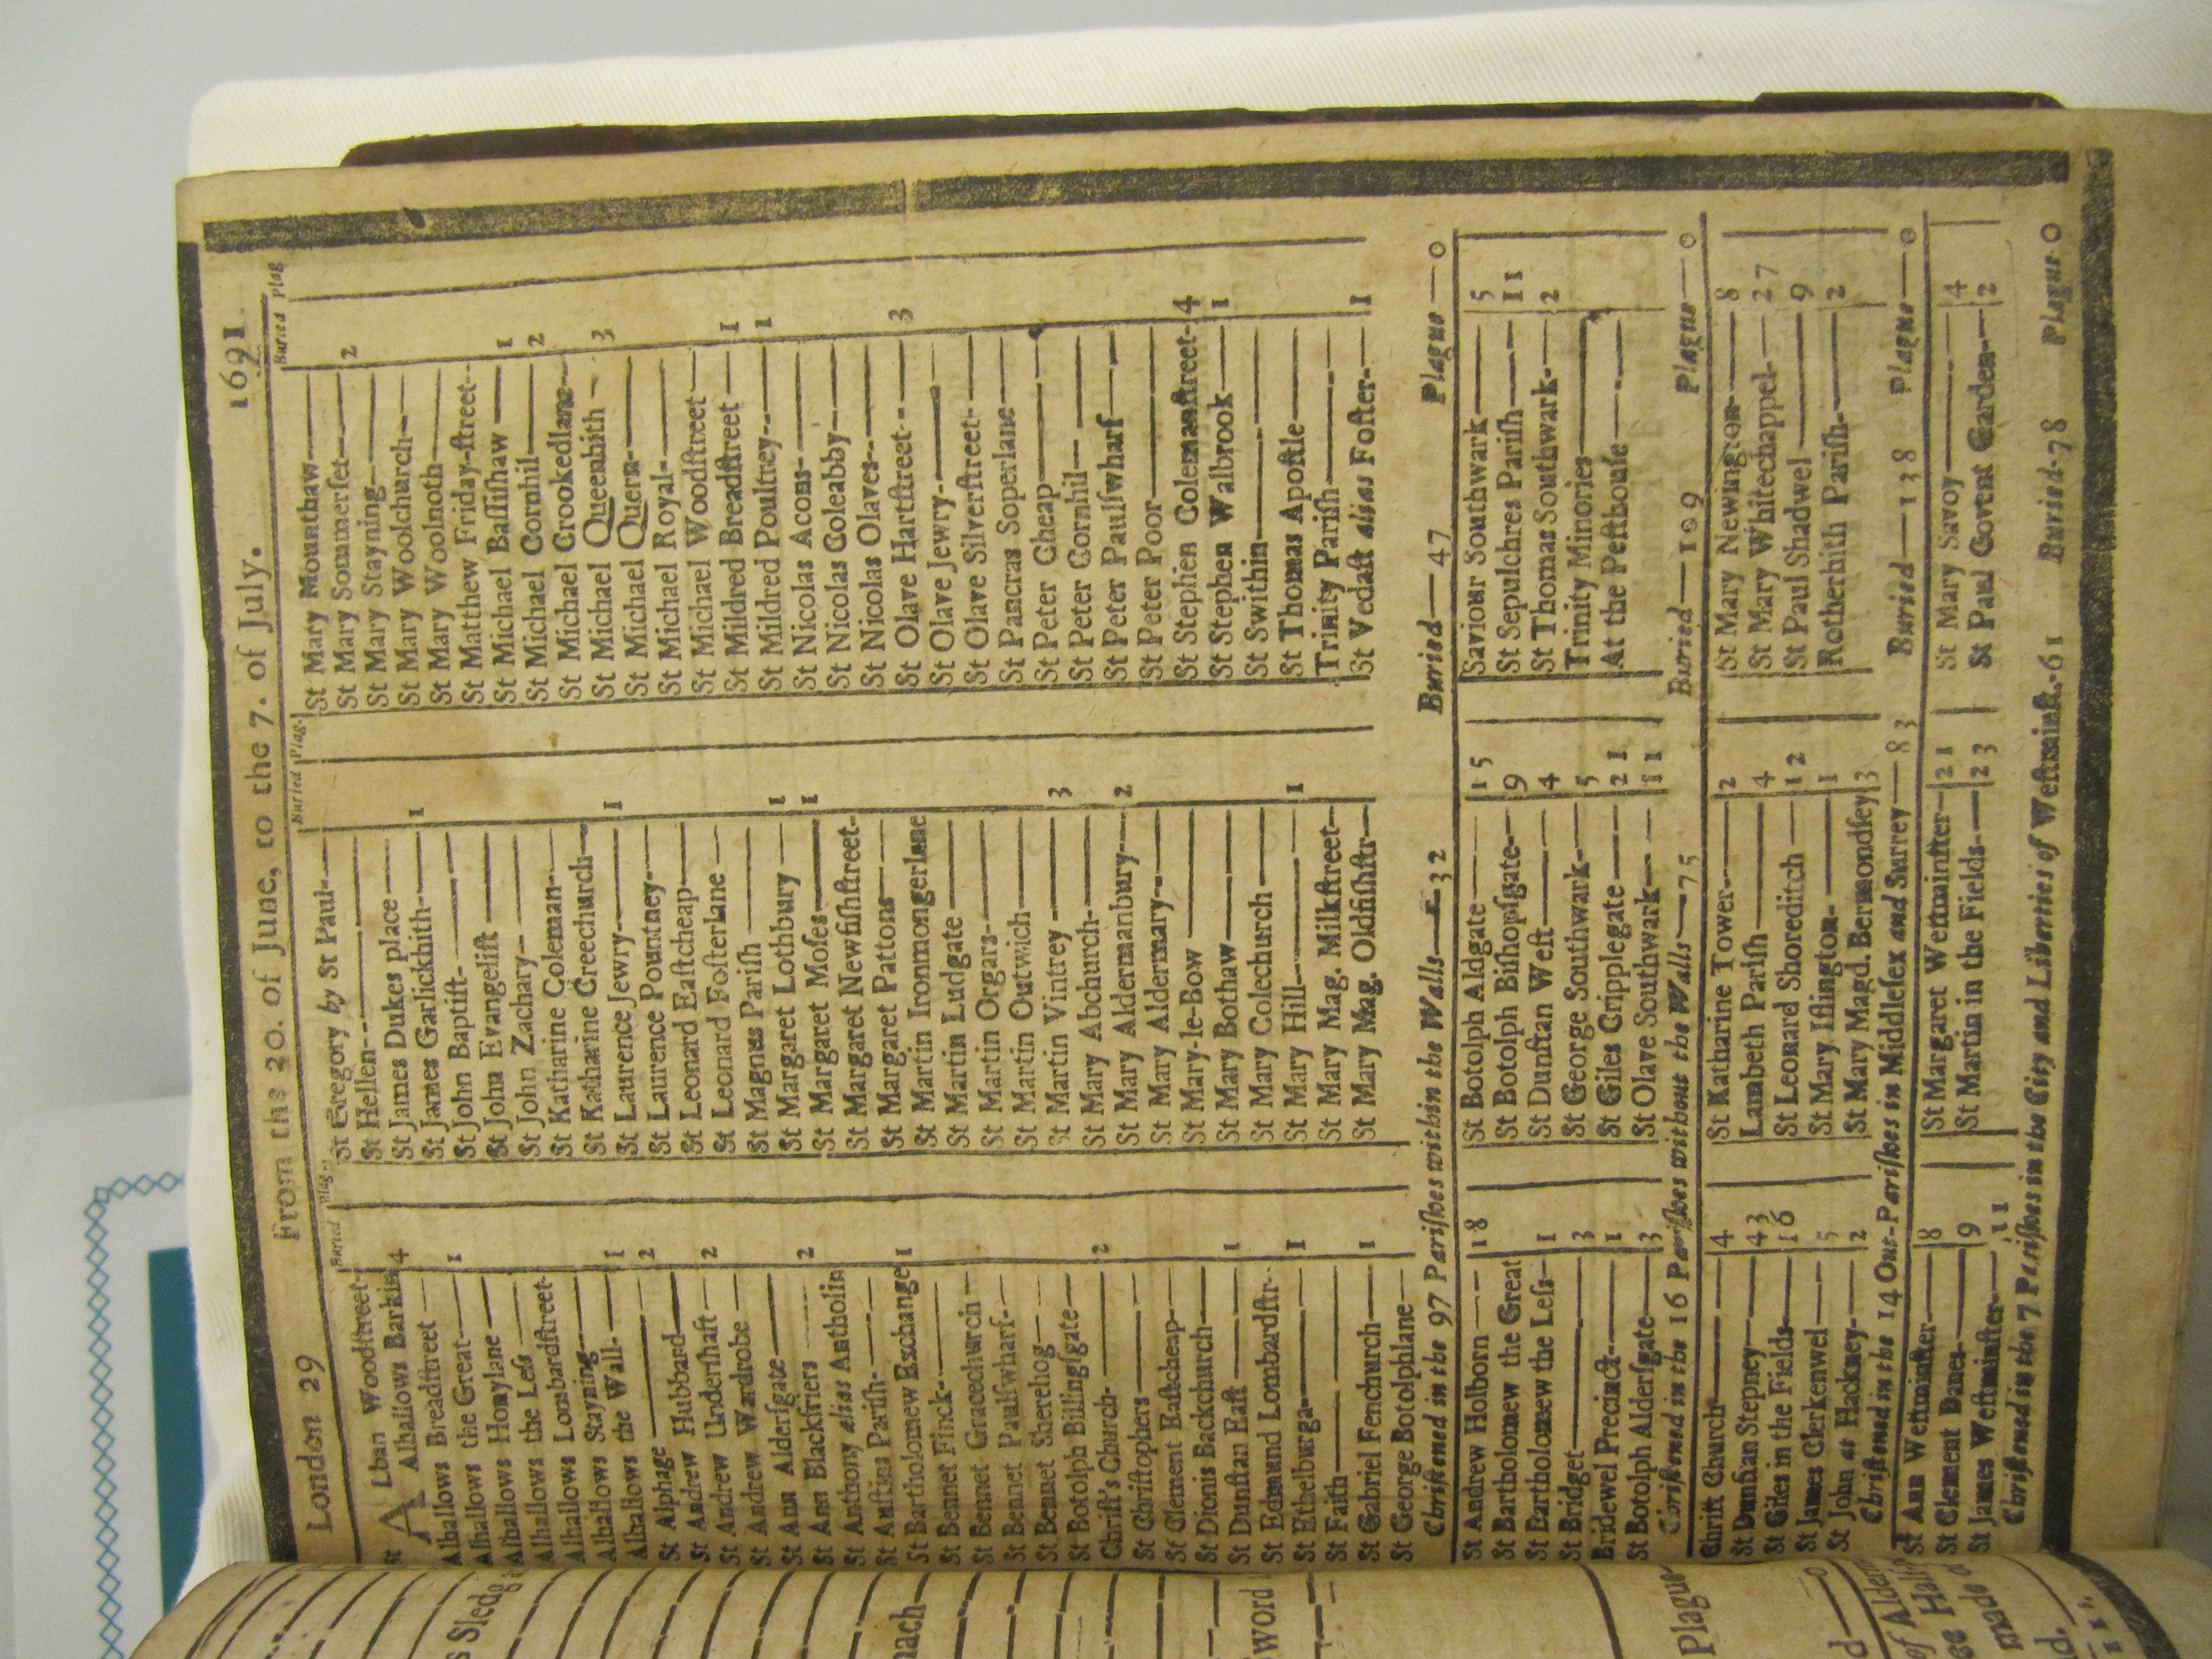 London 29 From the 30. of June, to the 7. of July. 1691
Buried Plag.
St ALban Woodſtreet-
Alhallows Barkin 4
Alhallows Breadſtreet —
Alhallows the Great— 1
Alhallows Honylane —
Alhallows the Leſs—
Alhallows Lombardſtreet-
Alhallows Stayning—
Alhallows the Wall- 1
St Alphage — 2
St Andrew Hubbard—
St Andrew Underſhaft — 2
St Andrew Wardrobe —
St Ann Alderſgate —
St Ann Blackfriers — 2
St Anthony alias Antholin
St Auſtins Pariſh—
St Bartholomew Exchange 1
St Bennet Finck—
St Bennet Gracechurch —
St Bennet Paulſwharf—
St Bennet Sherehog—
St Botolph Billingſgate—
Chriſt's Church— 2
St Chriſtophers —
St Clement Eaſtcheap—
St Dionis Backchurch—
St Dunſtan Eaſt — 1
St Edmund Lombardſtr—
St Ethelburga— 1
St Faith—
St Gabriel Fenchurch— 1
St George Botolphlane—
Buried Plag.
St Gregory by St Paul—
St Hellen—
St James Dukes place —
St James Garlickhith— 1
St John Baptiſt—
St John Evangeliſt —
St John Zachary—
St Katharine Coleman—
St Katharine Creechurch—
St Laurence Jewry— 1
St Laurence Pountney—
St Leonard Eaſtcheap—
St Leonard Foſterlane —
St Magnus Pariſh —
St Margaret Lothbury — 1
St Margaret Moſes— 1
St Margaret Newfiſhſtreet-
St Margaret Pattons—
St Martin Ironmongerlane
St Martin Ludgate —
St Martin Orgars—
St Martin Outwich —
St Martin Vintrey — 3
St Mary Abchurch—
St Mary Aldermanbury— 2
St Mary Aldermary—
St Mary-le-Bow —
St Mary Bothaw—
St Mary Colechurch —
St Mary Hill— 1
St Mary Mag. Milkſtreet—
St Mary Mag. Oldfiſhſtr—
Buried Plag
St Mary Mounthaw—
St Mary Sommerſet— 2
St Mary Stayning—
St Mary Woolchurch—
St Mary Woolnoth—
St Matthew Friday-ſtreet-
St Michael Baſſiſhaw — 1
St Michael Cornhil— 2
St Michael Crookedlane—
St Michael Queenhith — 3
St Michael Quern—
St Michael Royal—
St Michael Woodſtreet—
St Mildred Breadſtreet — 1
St Mildred Poultney— 1
St Nicolas Acons—
St Nicolas Coleabby—
St Nicolas Olaves—
St Olave Hartſtreet— 3
St Olave Jewry—
St Olave Silverſtreet—
St Pancras Soperlane—
St Peter Cheap—
St Peter Cornhil—
St Peter Paulſwharf—
St Peter Poor—
St Stephen Colemanſtreet- 4
St Stephen Walbrook— 1
St Swithin—
St Thomas Apoſtle—
Trinity Pariſh—
St Vedaſt alias Foſter— 1
Chriſtened in the 97 Pariſhes within the Walls—32 Buried—47 Plague—0
St Andrew Holborn — 18
St Bartholomew the Great
St Bartholomew the Leſs— 1
St Bridget— 3
Bridewel Precinct— 1
St Botolph Alderſgate— 3
St Botolph Aldgate — 15
St Botolph Biſhopſgate— 9
St Dunſtan Weſt— 4
St George Southwark— 5
St Giles Cripplegate — 21
St Olave Southwark— 11
Saviour Southwark— 5
St Sepulchres Pariſh— 11
St Thomas Southwark— 2
Trinity Minories—
At the Peſthouſe —
Chriſtened in the 16 Pariſhes without the Walls—75 Buried—109 Plague—0
Chriſt Church— 4
St Dunſtan Stepney— 43
St Giles in the Fields— 16
St James Clerkenwel— 5
St John at Hackney— 2
St Katharine Tower— 2
Lambeth Pariſh— 4
St Leonard Shoreditch — 12
St Mary Iſlington— 1
St Mary Magd. Bermondſey 3
St Mary Newington— 8
St Mary Whitechappel— 27
St Paul Shadwel— 9
Rotherhith Pariſh— 2
Chriſtened in the 14 Out-Pariſhes in Middleſex and Surrey—83 Buried—138 Plague—0
St Ann Weſtminſter— 8
St Clement Danes— 9
St James Weſtminſter— 11
St Margaret Weſtminſter— 21
St Martin in the Fields— 23
St Mary Savoy— 4
St Paul Covent Garden— 2
Chriſtened in the 7 Pariſhes in the City and Liberties of Weſtminſt.-61 Buried-78 Plague-0
Plague